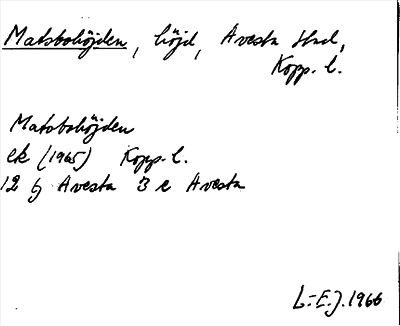 Matsbohöjden, höjd, Avesta stad,
Kopp. l.
Matsbohöjden
ek (1965) Kopp. l.
12 G Avesta 3 e Avesta
L-E.J. 1966